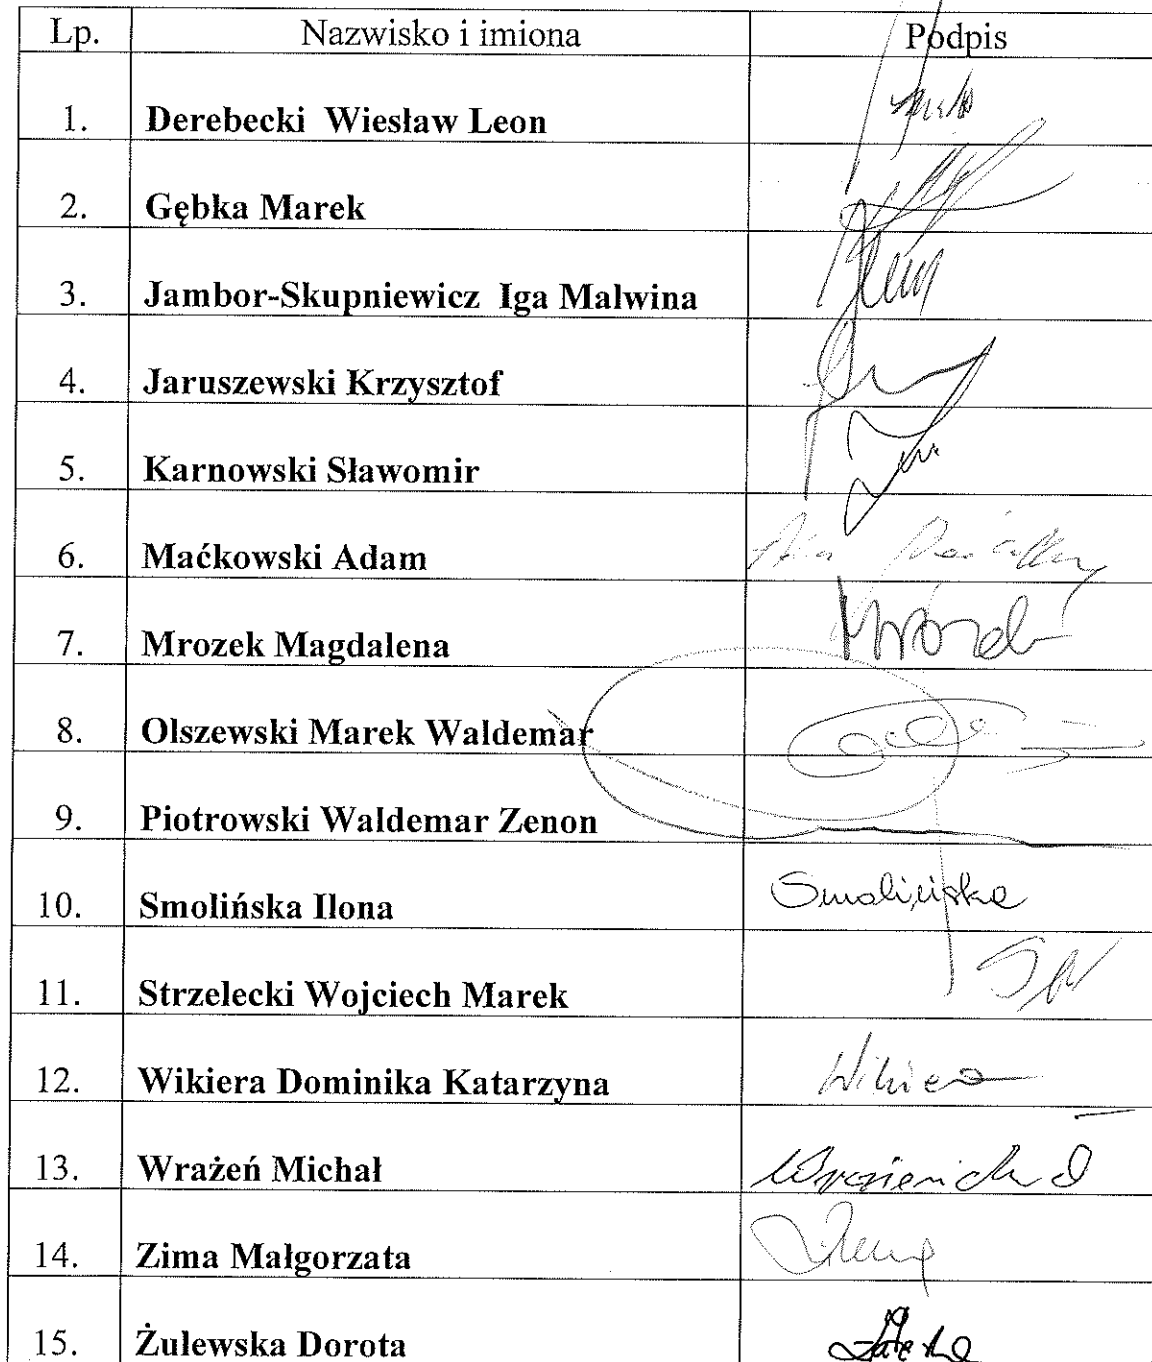 Lp. Nazwisko i imiona Podpis
1. Derebecki Wiesław Leon
2. Gębka Marek
3. Jambor-Skupniewicz Iga Malwina
4. Jaruszewski Krzysztof
5. Karnowski Sławomir
6. Maćkowski Adam
7. Mrozek Magdalena
8. Olszewski Marek Waldemar
9. Piotrowski Waldemar Zenon
10. Smolińska Ilona Smolińska
11. Strzelecki Wojciech Marek
12. Wikiera Dominika Katarzyna Wikiera
13. Wrażeń Michał
14. Zima Małgorzata
15. Żulewska Dorota